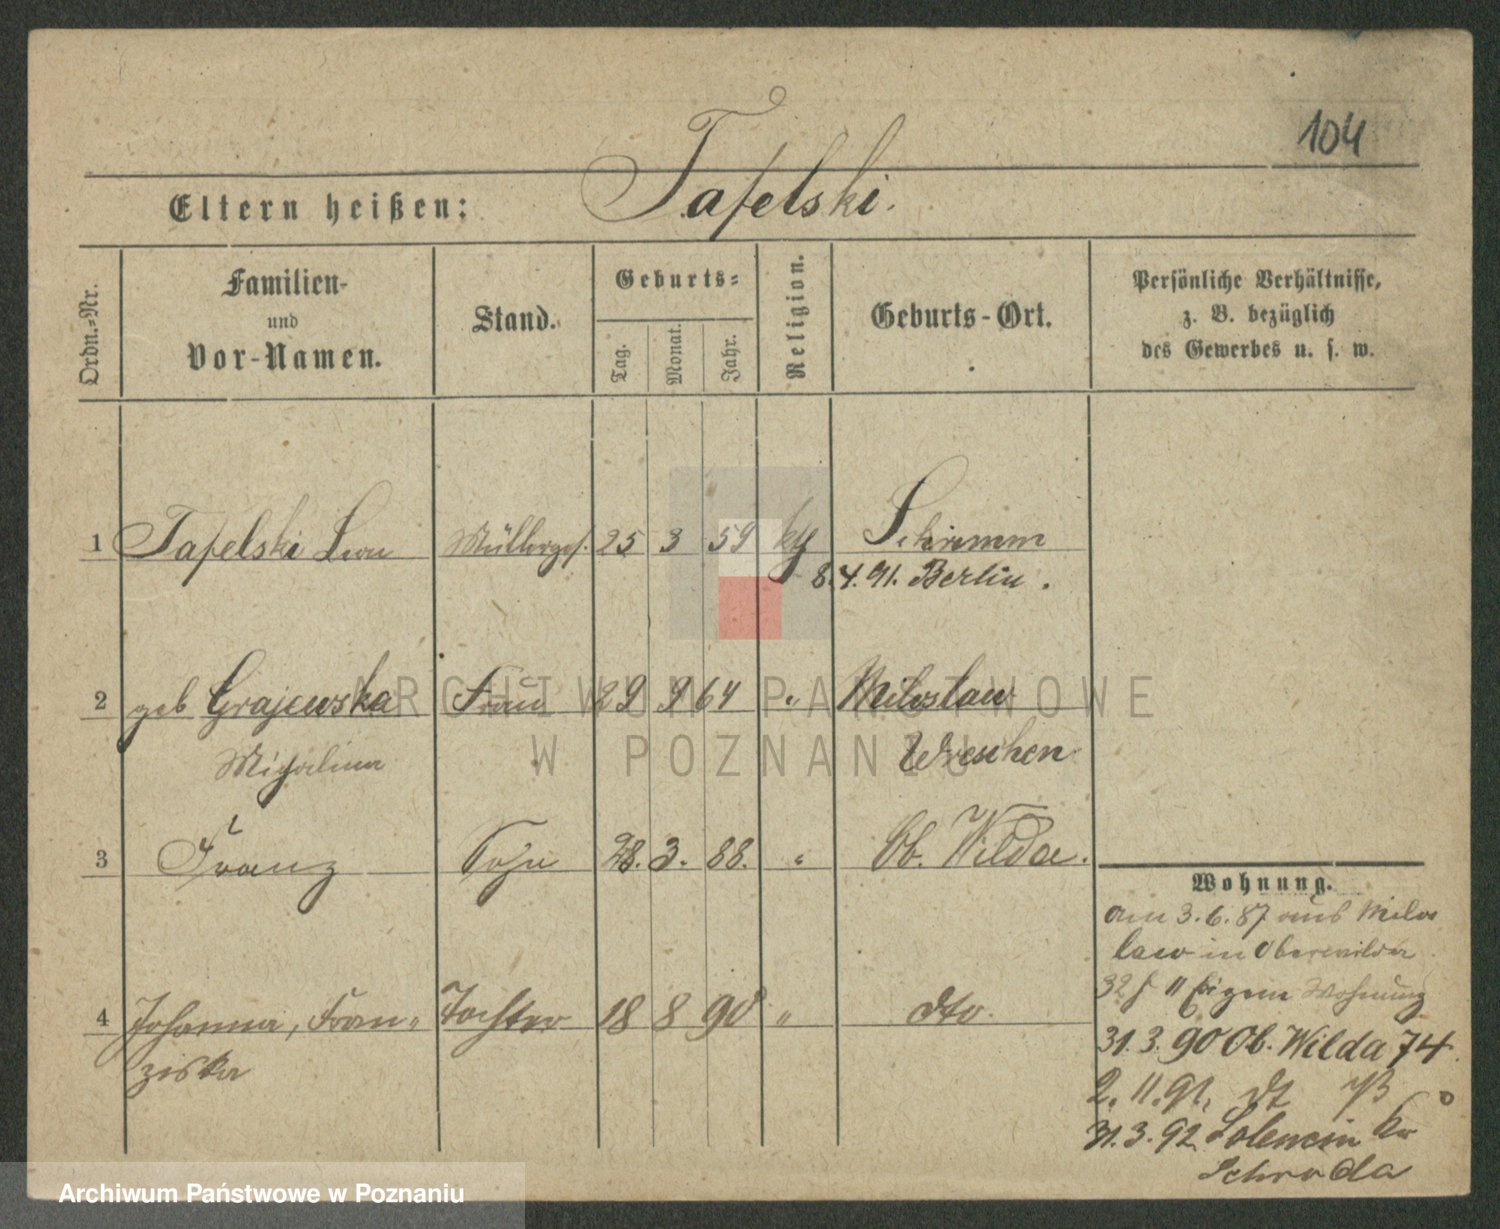 104
Eltern heißen: Tafelski.
Ordn.=Nr.
Familien-
und
Vor-Namen.
Stand.
Geburts=
Tag.
Monat.
Jahr.
Religion.
Geburts-Ort.
Persönliche Verhältnisse,
z. B. bezüglich
des Gewerbes u. s. w.
1 Tafelski Leon Müllerges. 25 3 59 Schrimm
8.4.91. Berlin.
2 geb Grajewska Frau 29 9 64 " Miloslaw
Wreschen
3 Franz Sohn 28. 3. 88. " Ob. Wilda.
4 Johanna, Fran= Tochter 18 8 90 " dto.
ziska
Wohnung.
am 3.6.87 aus Milos
law in Oberwilda
Eigene Wohnung
31.3.90 Ob. Wilda 74.
2.11.91. dt
31.3.92 Kr
Schroda
ARCHIWUM PAŃSTWOWE
W POZNANIU
Archiwum Państwowe w Poznaniu